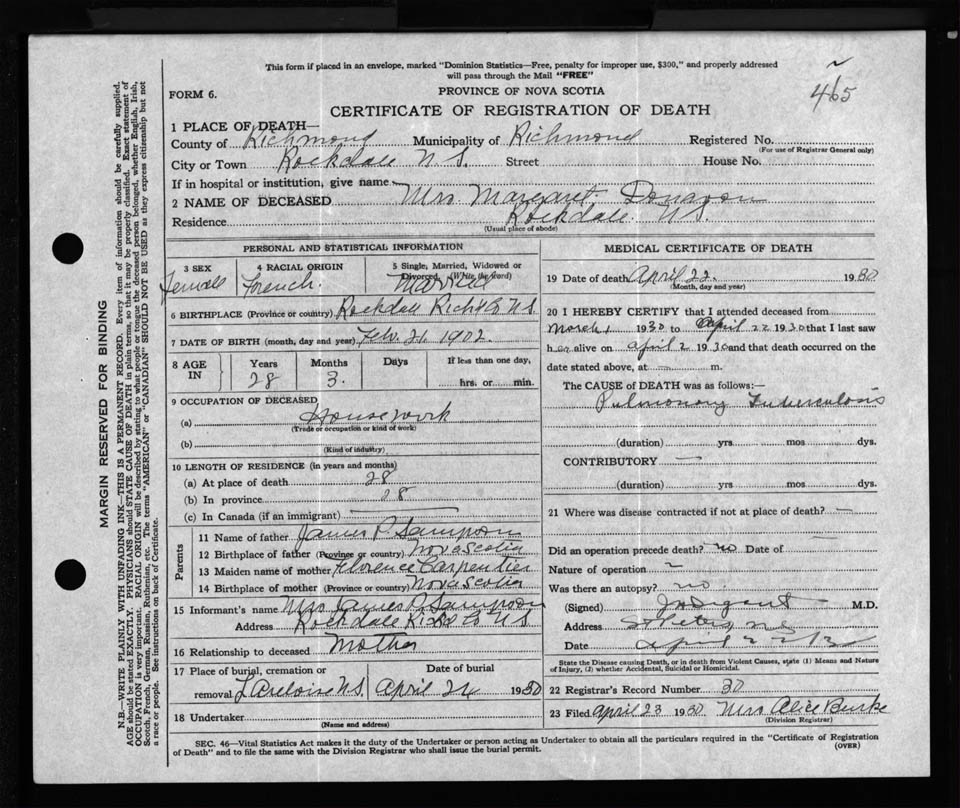 This form if placed in an envelope, marked "Dominion Statistics—Free, penalty for improper use, $300," and properly addressed
will pass through the Mail "FREE"
465
FORM 6.
PROVINCE OF NOVA SCOTIA
CERTIFICATE OF REGISTRATION OF DEATH
1 PLACE OF DEATH—
County of Richmond Municipality of Richmond Registered No.
(For use of Registrar General only)
City or Town Rockdale N.S. Street House No.
If in hospital or institution, give name
2 NAME OF DECEASED Mrs. Margaret
Residence Rockdale N.S.
(Usual place of abode)
PERSONAL AND STATISTICAL INFORMATION
3 SEX 4 RACIAL ORIGIN 5 Single, Married, Widowed or
Divorced (Write the word)
Femall French. Married
6 BIRTHPLACE (Province or country) Rockdall Rich Co N.S.
7 DATE OF BIRTH (month, day and year) Feb. 21, 1902.
8 AGE IN Years Months Days If less than one day,
28 3. hrs. or min.
9 OCCUPATION OF DECEASED
(a) Housework
(Trade or occupation or kind of work)
(b)
(Kind of industry)
10 LENGTH OF RESIDENCE (in years and months)
(a) At place of death 28
(b) In province 28
(c) In Canada (if an immigrant)
Parents
11 Name of father James P. Sampson
12 Birthplace of father (Province or country) Nova Scotia
13 Maiden name of mother Florence Carpentier
14 Birthplace of mother (Province or country) Nova Scotia
15 Informant's name Mrs James P. Sampson
Address Rockdale Rich Co N.S.
16 Relationship to deceased Mother
17 Place of burial, cremation or Date of burial
removal N.S. April 24 1930
18 Undertaker
(Name and address)
MEDICAL CERTIFICATE OF DEATH
19 Date of death April 22. 1930
(Month, day and year)
20 I HEREBY CERTIFY that I attended deceased from
March 1 1930 to April 22 1930 that I last saw
her alive on April 2 1930 and that death occurred on the
date stated above, at — m.
The CAUSE of DEATH was as follows:—
Pulmonary Tuberculosis
(duration) yrs. mos. dys.
CONTRIBUTORY —
(duration) yrs. mos. dys.
21 Where was disease contracted if not at place of death? —
Did an operation precede death? no Date of —
Nature of operation
Was there an autopsy? no.
(Signed) M.D.
Address St Peters, N.S.
Date April 22/30
State the Disease causing Death, or in death from Violent Causes, state (1) Means and Nature
of Injury, (2) whether Accidental, Suicidal or Homicidal.
22 Registrar's Record Number 30
23 Filed April 23 1930 Mrs Alice Burke
(Division Registrar)
SEC. 46—Vital Statistics Act makes it the duty of the Undertaker or person acting as Undertaker to obtain all the particulars required in the "Certificate of Registration
of Death" and to file the same with the Division Registrar who shall issue the burial permit.
(OVER)
MARGIN RESERVED FOR BINDING
N.B.—WRITE PLAINLY WITH UNFADING INK—THIS IS A PERMANENT RECORD. Every item of information should be carefully supplied.
AGE should be stated EXACTLY. PHYSICIANS should STATE CAUSE OF DEATH in plain terms, so that it may be properly classified. Exact statement of
OCCUPATION is very important. RACIAL ORIGIN will be described by stating to what people or tongue the deceased person belonged, whether English, Irish,
Scotch, French, German, Russian, Ruthenian, etc. The terms "AMERICAN" or "CANADIAN" SHOULD NOT BE USED as they express citizenship but not
a race or people. See instructions on back of Certificate.